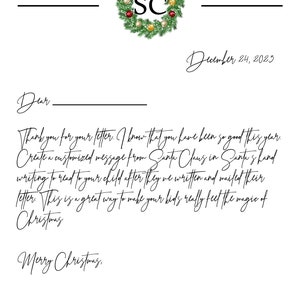 SC
December 24, 2023
Dear
Thank you for your letter. I know that you have been so good this year.
Create a customized message from Santa Claus in Santa's hand
writing to read to your child after they've written and mailed their
letter. This is a great way to make your kids really feel the magic of
Christmas
Merry Christmas,